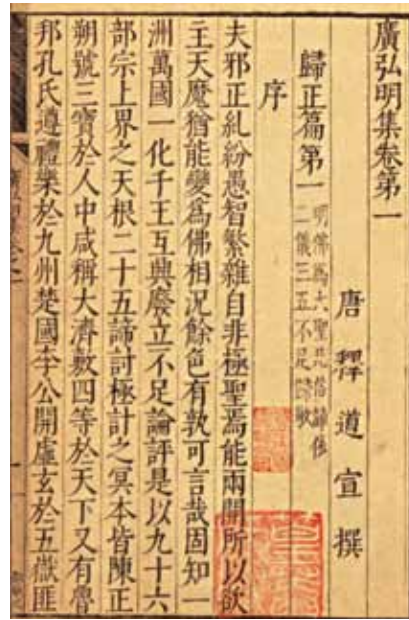 廣弘明集卷第一
唐釋道宣撰
歸正篇第一
明佛爲大聖凡俗
二儀三五不足歸敬
序
夫邪正糺紛愚智繁雜自非極聖焉能兩開所以欲
主天魔猶能變爲佛相況餘色有孰可言哉固知一
洲萬國一化千王互興廢立不足論評是以九十六
部宗上界之天根二十五諦討極計之冥本皆陳正
朔號三寶於人中咸稱大濟敷四等於天下又有魯
邦孔氏遵禮樂於九州楚國李公開虛玄於五嶽匪